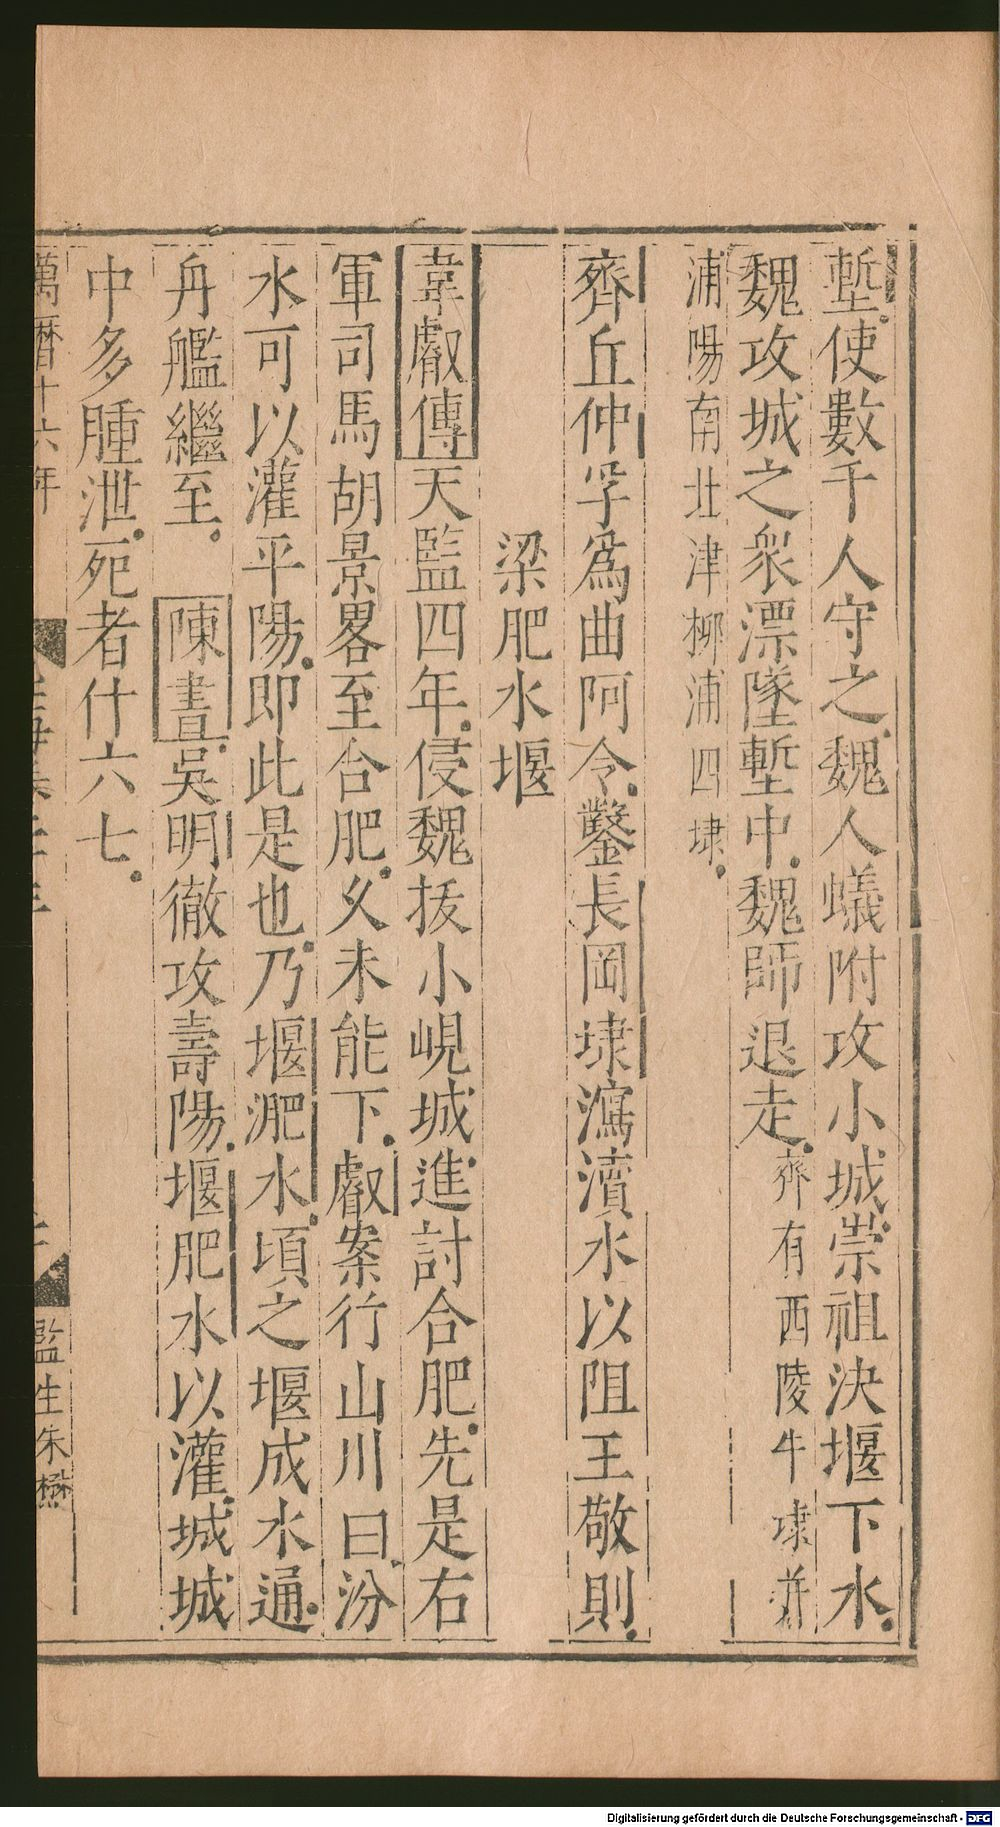 塹使數千人守之魏人蟻附攻小城崇祖決堰下水
魏攻城之衆漂墜塹中魏師退走齊有西陵牛埭并
浦陽南北津柳浦四埭
齊丘仲孚為曲阿令鑿長岡埭瀉瀆水以阻王敬則
梁肥水堰
韋叡傳天監四年侵魏拔小峴城進討合肥先是右
軍司馬胡景畧至合肥久未能下叡案行山川曰汾
水可以灌平陽即此是也乃堰淝水頃之堰成水通
舟艦繼至 陳書吳明徹攻壽陽堰肥水以灌城城
中多腫泄死者什六七
萬曆十六年
監生朱懋
Digitalisierung gefördert durch die Deutsche Forschungsgemeinschaft - DFG